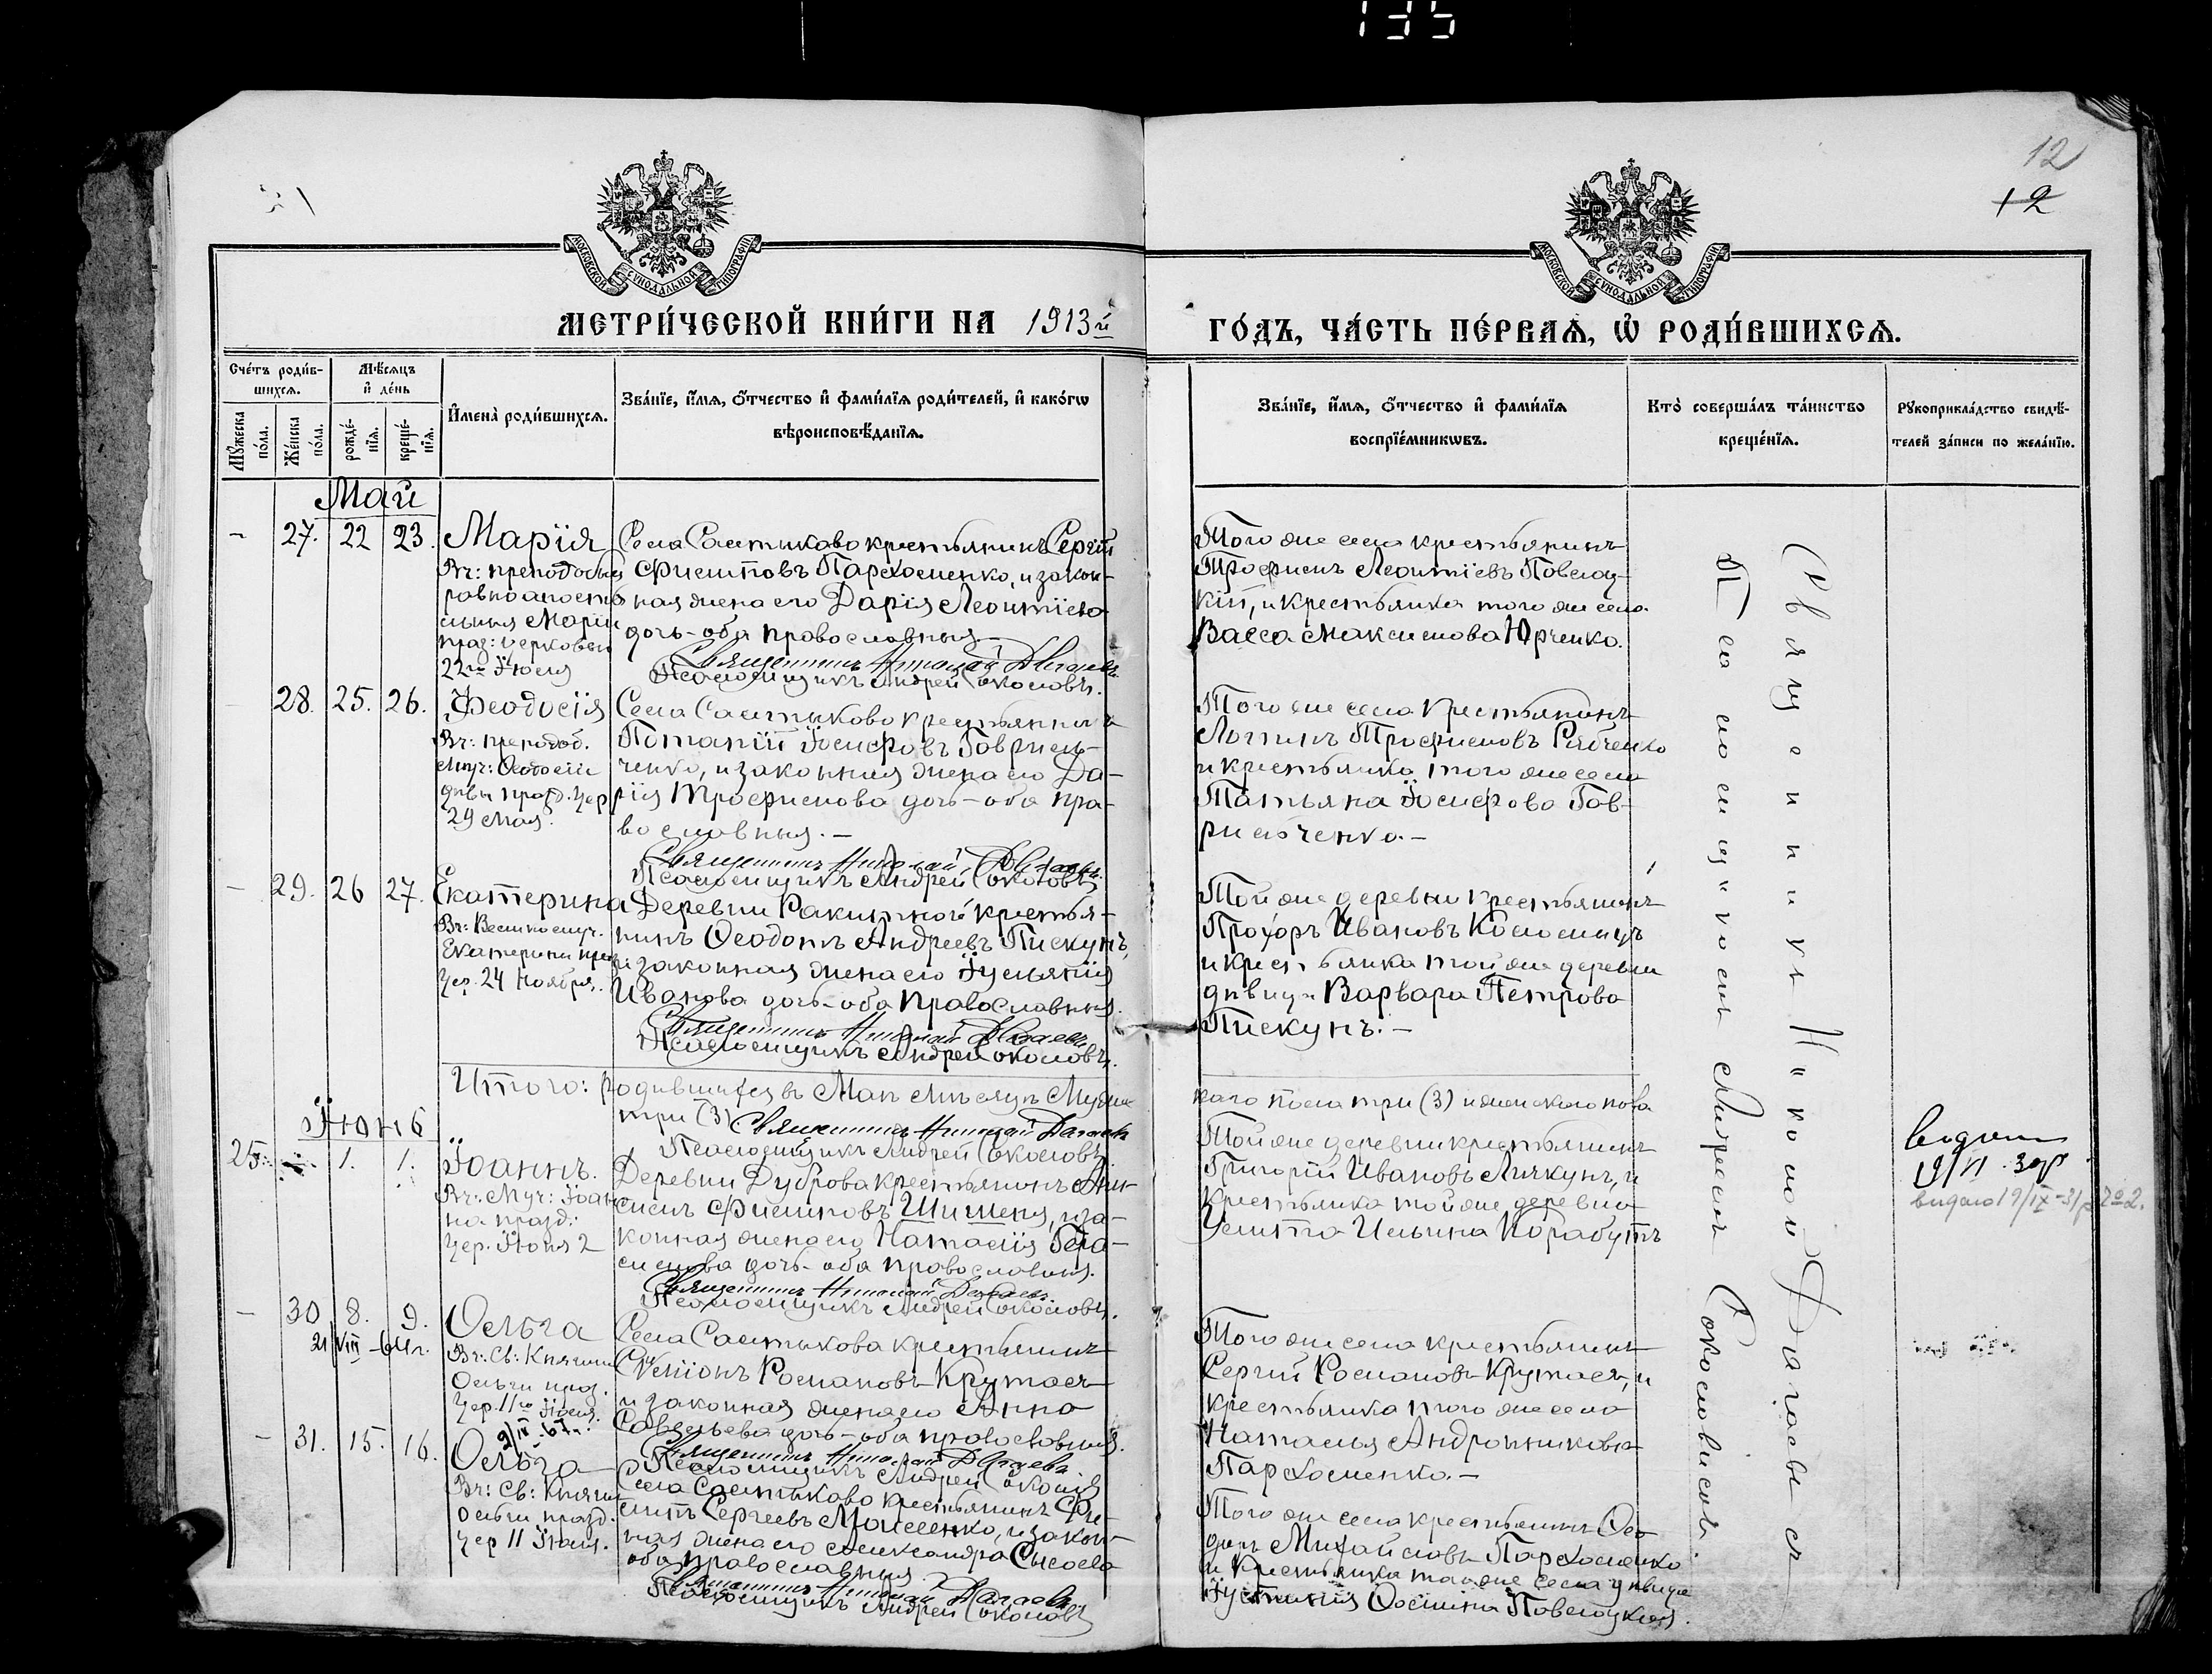 135
12
12
МОСКОВСКОЙ СѴНОДАЛЬНОЙ ТИПОГРАФІИ
МОСКОВСКОЙ СѴНОДАЛЬНОЙ ТИПОГРАФІИ
МЕТРИ́ЧЕСКОЙ КНИ́ГИ НА 1913й
ГО́ДЪ, ЧА́СТЬ ПЕ́РВАѦ, Ѡ҆ РОДИ́ВШИХСѦ.
Сче́тъ роди́в-
шихсѧ.
Мꙋ́жеска по́ла.
Же́нска по́ла.
Мѣ́сѧцъ
и҆ де́нь
рожде́-
нїѧ.
креще́-
нїѧ.
И҆мена̀ роди́вшихсѧ.
Зва́нїе, и҆́мѧ, ѻ҆́тчество и҆ фами́лїѧ роди́телей, и҆ како́гѡ
вѣроисповѣ́данїѧ.
Зва́нїе, и҆́мѧ, ѻ҆́тчество и҆ фами́лїѧ
воспрїе́мникѡвъ.
Кто̀ соверша́лъ та́инство
креще́нїѧ.
Рꙋкоприкла́дство свидѣ́-
телей за́писи по жела́нїю.
Май
- 27. 22 23.
Марія
Вч: преподобныя
равноапосто
льныя Маріи
праз: церковью
22го Іюля
Села Салтыкова крестьянинъ Сергій
Филиповъ Пархоменко, и закон-
ная жена его Дарія Леонтіева
дочь - оба православныя
Священникъ Николай
Псаломщикъ Андрей Соколовъ.
Того же села крестьянинъ
Трофимъ Леонтіевъ Повелоц-
кій, и крестьянка того же села
Васса Максимова Юрченко.
28. 25. 26.
Феодосія
Вч: преподоб.
муч: Ѳеодосіи
дѣвы празд. цер
29 Мая.
Села Салтыкова крестьянинъ
Потапій Іосифовъ Гавриль-
ченко, и законная жена его Да-
рія Трофимова дочь - оба пра-
вославныя. -
Священникъ Николай
Псаломщикъ Андрей Соколовъ
Того же села крестьянинъ
Логинъ Трофимовъ Рябченко
и крестьянка того же села
Татьяна Іосифова Гав-
рильченко. -
- 29. 26 27.
Екатерина
Вч: Великомуч.
Екатерины праз
цер. 24 Ноября.
Деревни Ракитной крестья-
нинъ Ѳеодотъ Андреевъ Пискунъ,
и законная жена его Іуліянія
Иванова дочь - оба православныя.
Священникъ Николай
Псаломщикъ Андрей Соколовъ.
Той же деревни крестьянинъ
Прохоръ Ивановъ Коломыцъ
и крестьянка той же деревни
дѣвица Варвара Петрова
Пискунъ. -
Итого: родившихся въ Маѣ мѣсяцѣ Муже
скаго пола три (3) и женскаго пола
три (3) Священникъ Николай
Псаломщикъ Андрей Соколовъ.
Іюнь
25. 1. 1.
Іоаннъ.
Вч: Муч: Іоан
на празд:
цер. Іюня 2
Деревни Дуброва крестьянинъ
Филиповъ Шишеня, и за-
конная жена его Наталія Гера-
симова дочь - оба православныя.
Священникъ Николай
Псаломщикъ Андрей Соколовъ.
Той же деревни крестьянинъ
Григорій Ивановъ Личкунъ, и
крестьянка той же деревни
Улита Ильина Карабутъ
19/VI. 30р
видано 19/IX-31р. № 2.
- 30 8. 9.
21/VIII-64г.
Ольга
Вч: Св: Княгини
Ольги праз.
Цер. 11го Іюля.
Села Салтыкова крестьянинъ
Романовъ Крутась
и законная жена его Анна
Савельева дочь - оба православныя.
Священникъ Николай
Псаломщикъ Андрей Соколовъ
Того же села крестьянинъ
Сергій Романовъ Крутась, и
крестьянка того же села
Наталья Андронникова
Пархоменко. -
- 31. 15. 16.
9/IX-67г.
Ольга
Вч: Св: Княгини
Ольги празд.
Цер 11 Іюля.
Села Салтыкова крестьянинъ Фи-
липъ Сергеевъ Моисеенко, и закон-
ная жена его Александра Сысоева
оба православныя
Священникъ Николай
Псаломщикъ Андрей Соколовъ
Того же села крестьянинъ Ѳео
доръ Михайловъ Пархоменко
и крестьянка того же села дѣвица
Повелоцкая.
Священникъ Николай
Псаломщикъ Андрей Соколовъ